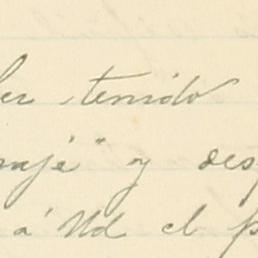 ber tenido
najé" y desp
á Ud el p